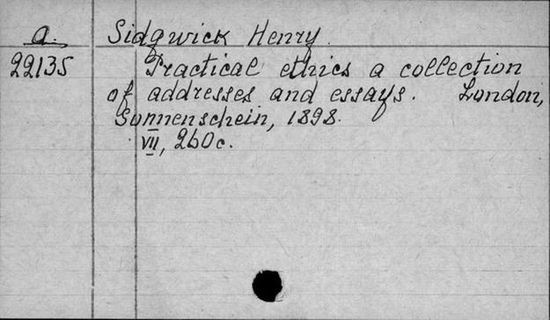 a. Sidgwick Henry.
22135 Practical ethics a collection
of addresses and essays. London,
Sonnenschein, 1898.
VII, 260c.